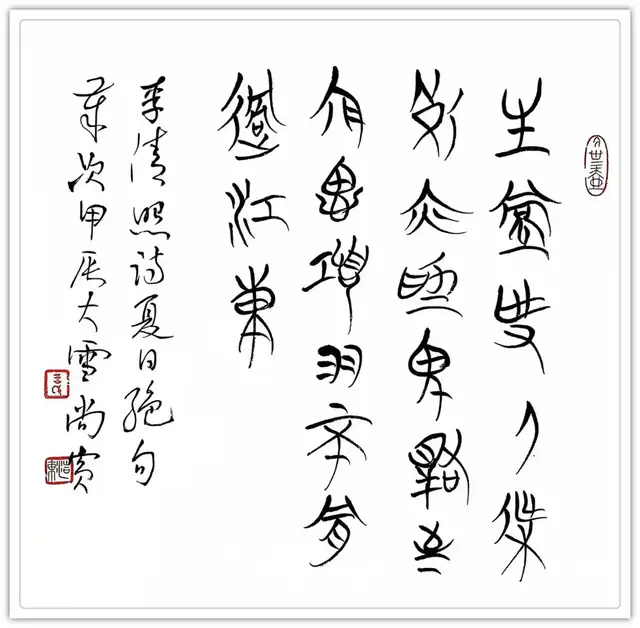 生當作人傑
死亦為鬼雄至
今思項羽不肯
過江東
李清照詩夏日絕句
歲次甲辰大雪尚